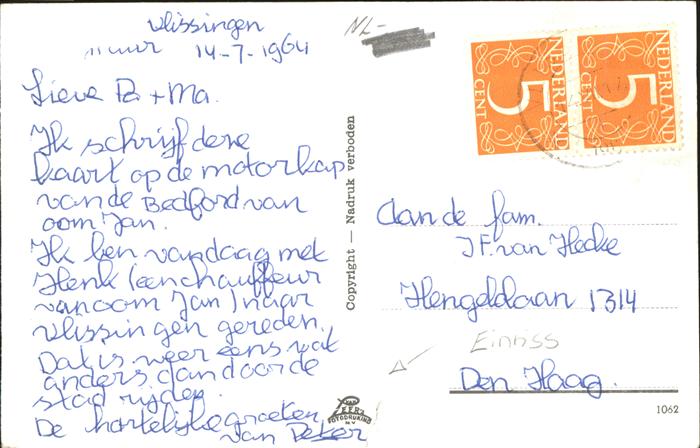 Vlissingen
uur 14-7-1964
Lieve Pa + Ma.
Ik schrijf deze
kaart op de motorkap
van de Bedford van
oom Jan.
Ik ben vandaag met
Henk (een chauffeur
van oom Jan) naar
Vlissingen gereden.
Dat is weer eens wat
anders dan door de
stad rijden.
De hartelijke groeten
van Peter
Copyright — Nadruk verboden
VAN LEER'S
FOTODRUKIND
N.V.
NL-
NEDERLAND
5
CENT
NEDERLAND
5
CENT
Aan de fam.
J F. van Hecke
Hengelolaan 1314
Einriss
Den Haag.
1062